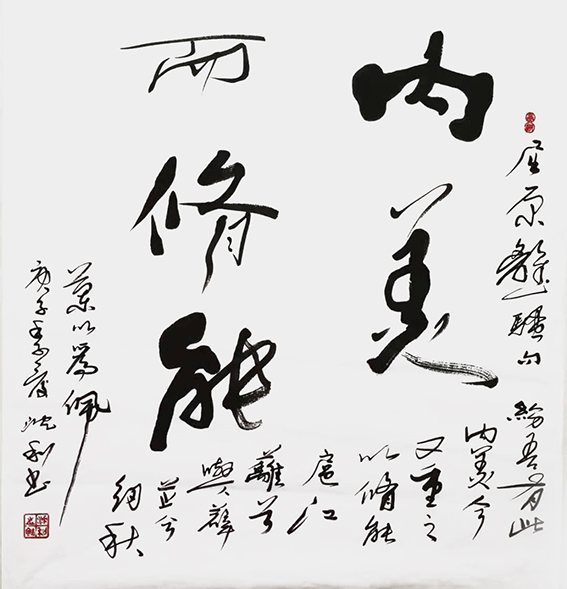 内美
而修能
屈原離騷句
紛吾有此
内美兮
又重之
以脩能
扈江
離兮
與薜
芷兮
紉秋
蘭以爲佩
庚子季夏 利书